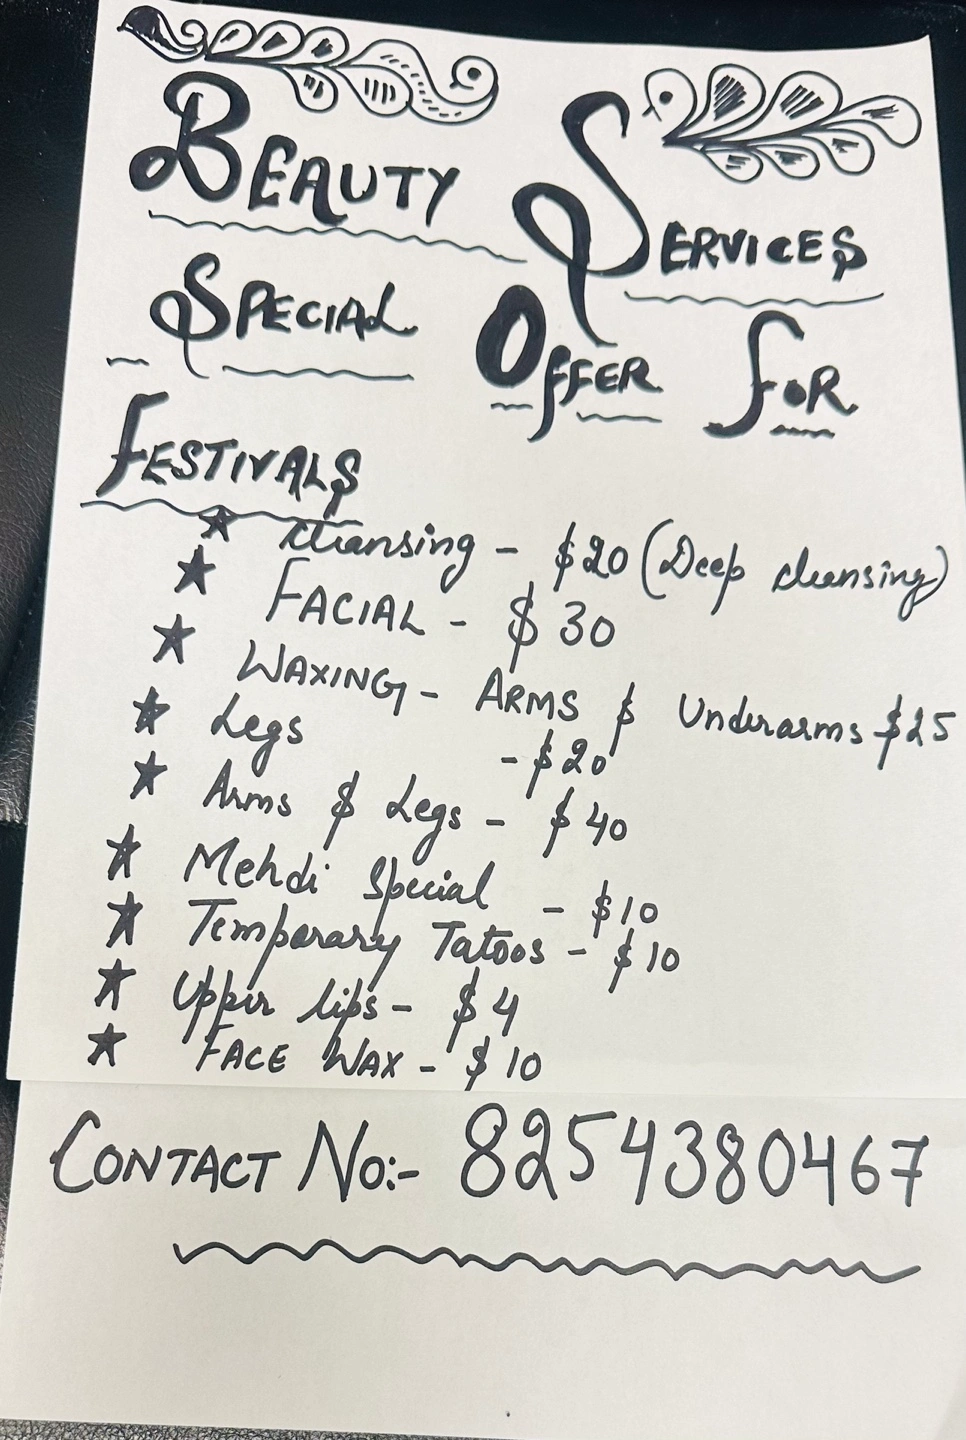 BEAUTY SERVICES
SPECIAL OFFER FOR
FESTIVALS
★ Cleansing - $20 (Deep cleansing)
★ FACIAL - $30
★ WAXING - ARMS & Underarms $25
★ Legs - $20
★ Arms & Legs - $40
★ Mehdi Special - $10
★ Temporary Tatoos - $10
★ Upper lips - $4
★ FACE WAX - $10
CONTACT No:- 8254380467